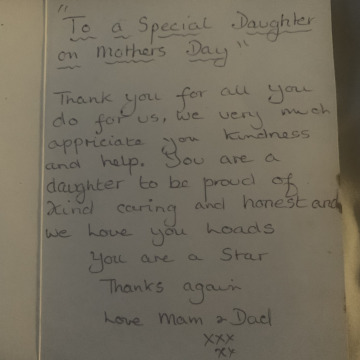 "To a Special Daughter
on Mothers Day"
Thank you for all you
do for us, we very much
appriciate you kindness
and help. You are a
daughter to be proud of
kind caring and honest and
we love you loads
You are a Star
Thanks again
Love Mam & Dad
xxx
xx